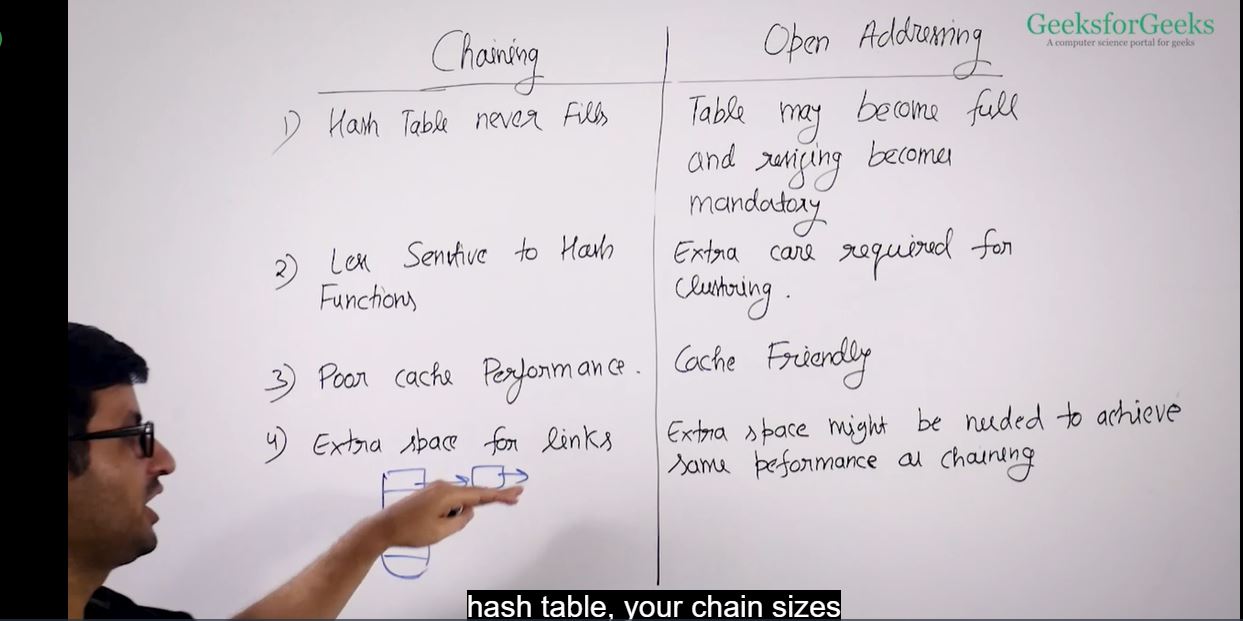 GeeksforGeeks
A computer science portal for geeks
Chaining
Open Addressing
1) Hash Table never Fills
Table may become full
and resizing becomes
mandatory
2) Less Sensitive to Hash
Functions
Extra care required for
clustering.
3) Poor cache Performance.
Cache Friendly
4) Extra space for links
Extra space might be needed to achieve
same peformance as chaining
hash table, your chain sizes